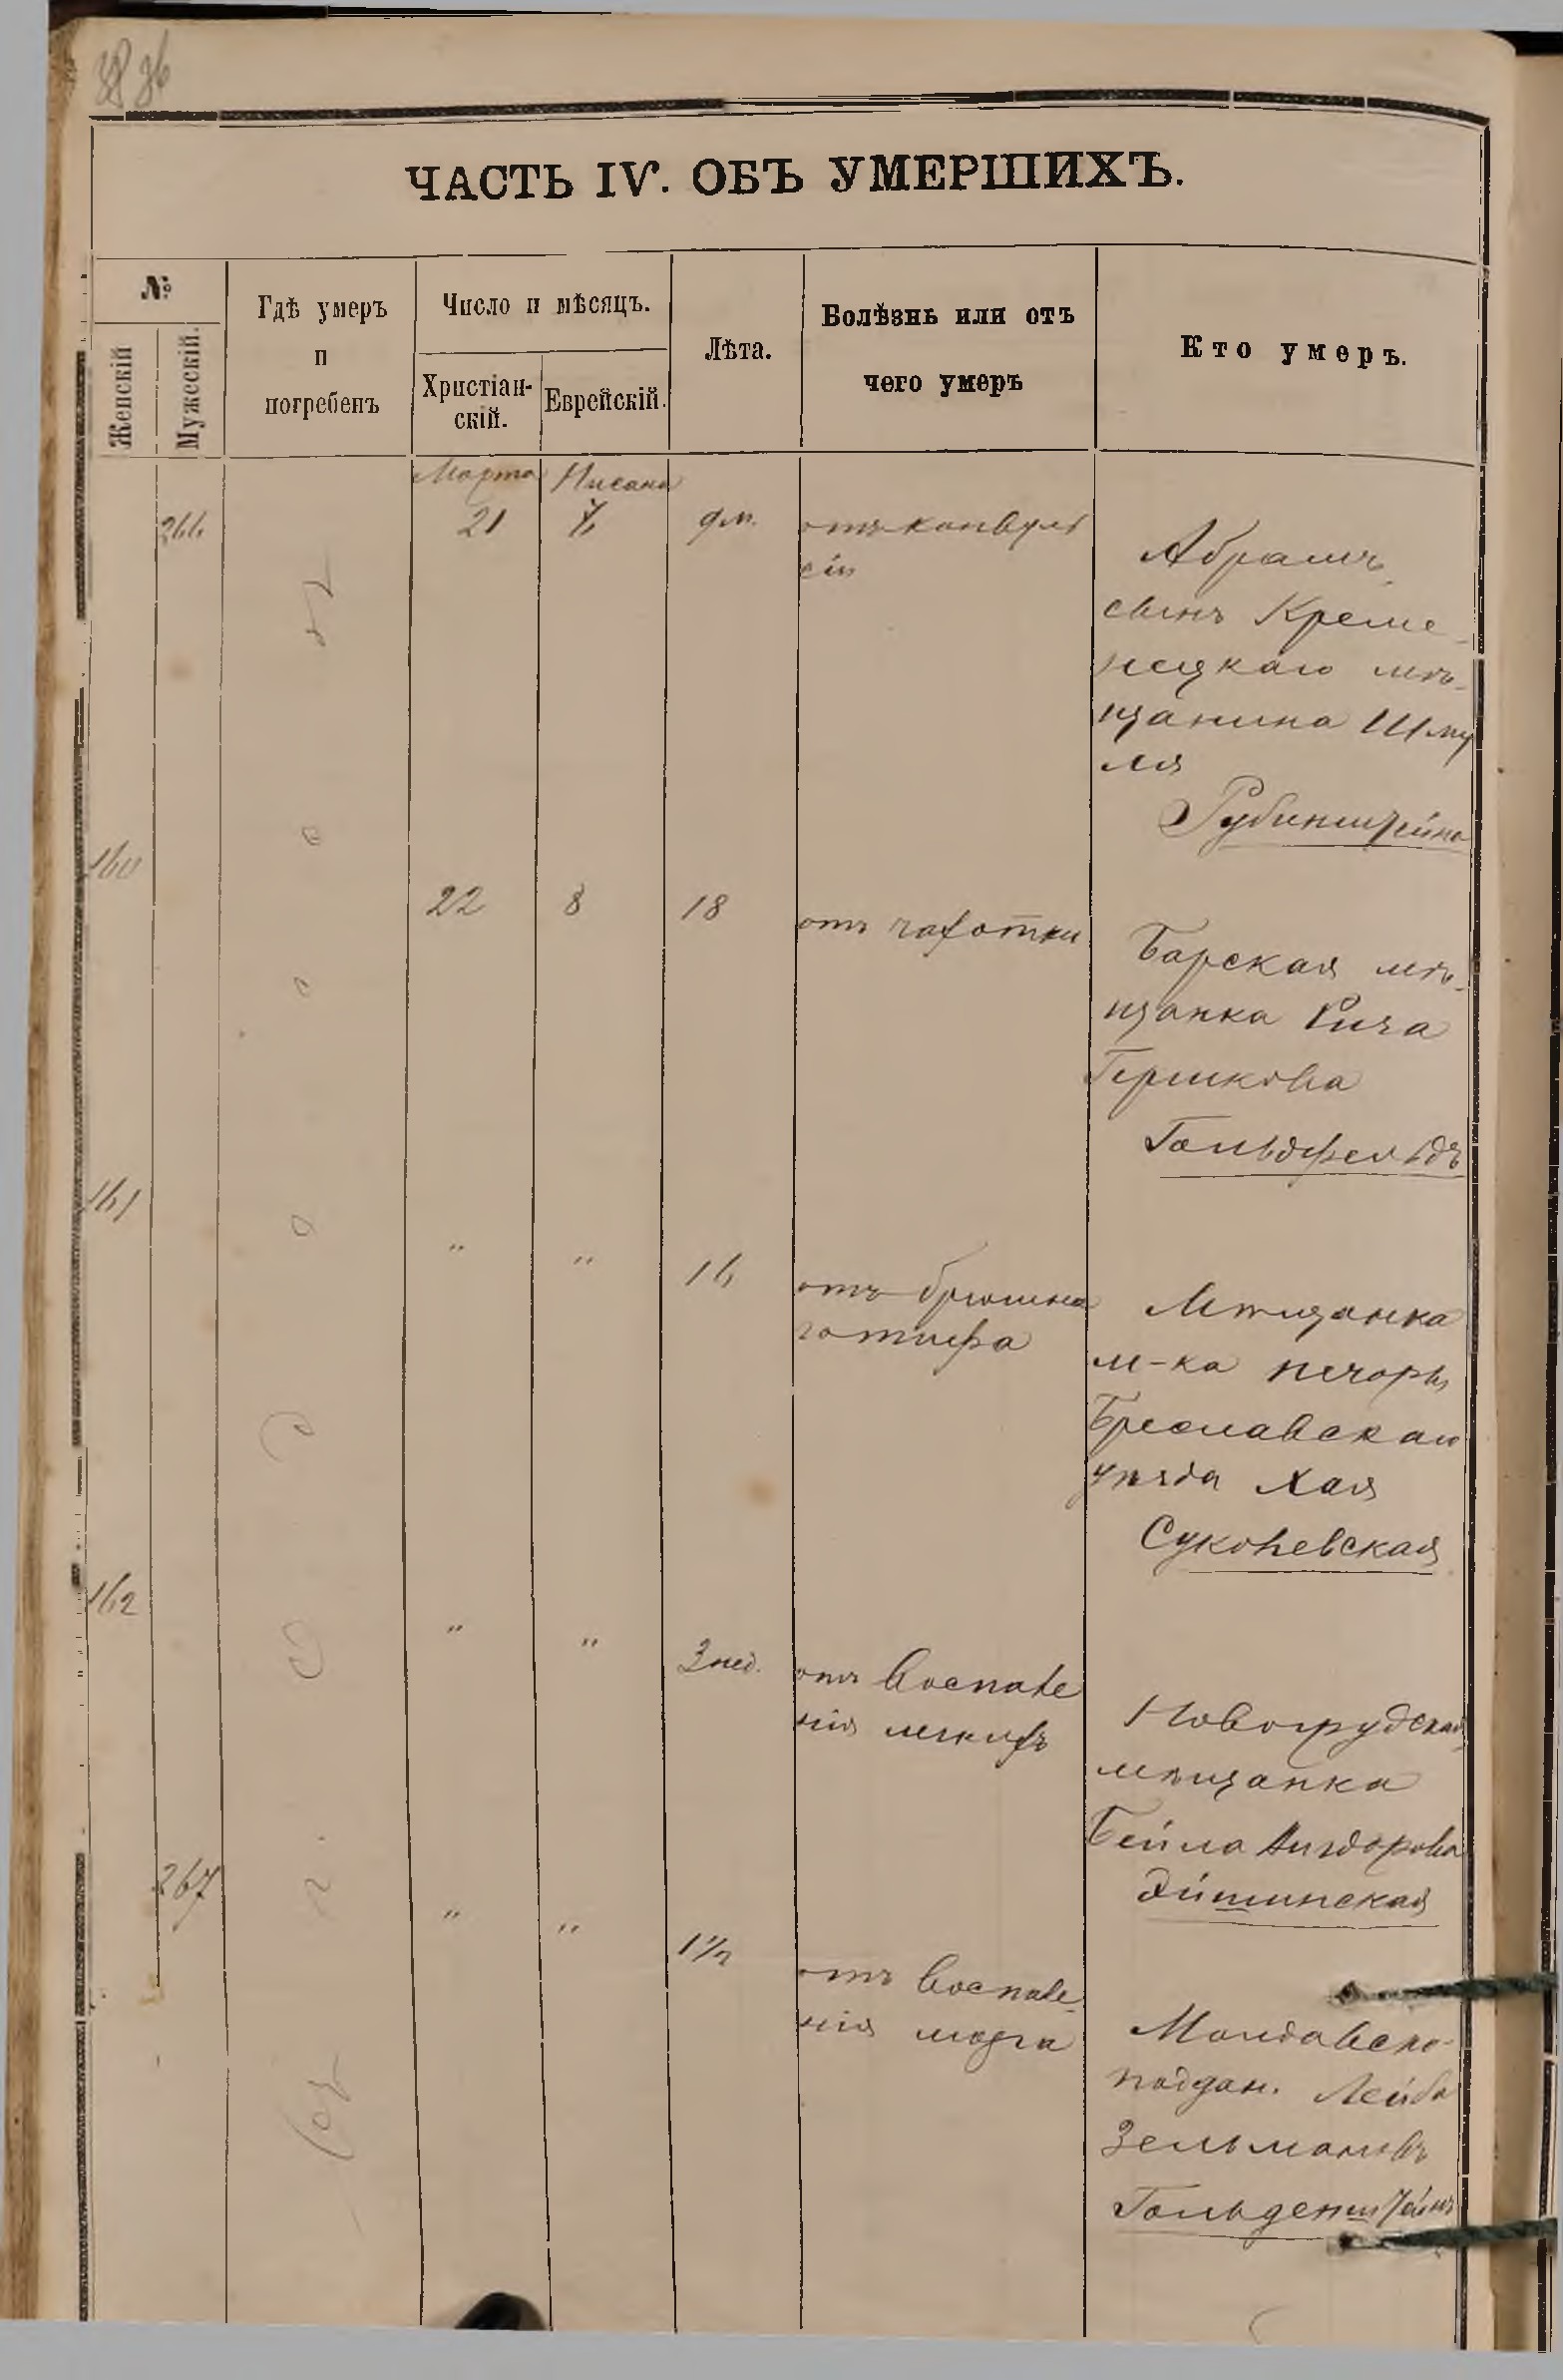 36
ЧАСТЬ IV. ОБЪ УМЕРШИХЪ.
№
Женскій
Мужескій.
Гдѣ умеръ
и
погребенъ
Число и мѣсяцъ.
Христіан-
скій.
Еврейскій.
Лѣта.
Болѣзнь или отъ
чего умеръ
Кто умеръ.
Марта Нисана
266 21 7 9 м. отъ конвуль
сіи
Абрамъ
сынъ Креме-
нецкаго мѣ-
щанина Шму
ля
Рубинштейна
160
22 8 18 отъ чахотки
Барская мѣ-
щанка Рися
Гершкова
Гольдфельдъ
161
" " 16 отъ брюшна
го тифа
Мѣщанка
м-ка Печоры
Бреславскаго
уѣзда Хая
Суконевская
162
" " 3 нед. отъ воспале
нія легкихъ
Новогрудская
мѣщанка
Бейла
267
" " 1½ отъ воспале-
нія мозга
Молдавско-
поддан. Лейба
Зельмановъ
Гольденштейнъ